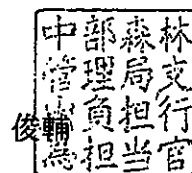 中部森林
管理局支
出負担行
為担当官
俊輔